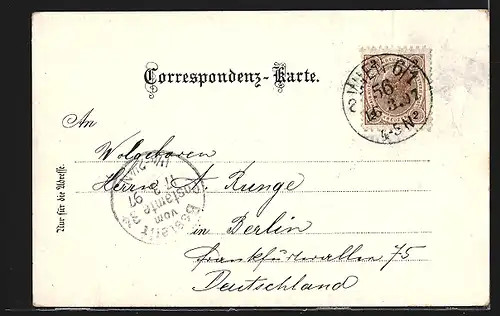 Correspondenz-Karte.
WIEN 6/1
56
16.3.97
4-5 N
An
Wolgeboren
Herrn A Runge
in Berlin
Frankfurterallee 75
Deutschland
Nur für die Adresse.
Bestellt
vom
Postamte
97